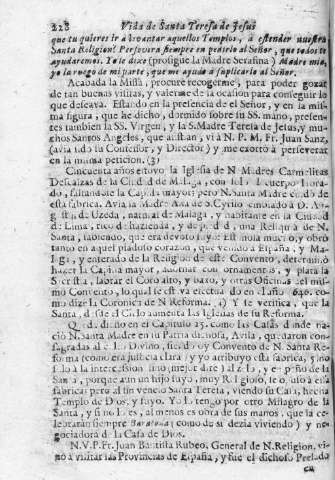 228 Vida de Santa Teresa de Jesus
que tu quieres ir à levantar aquellos Templos, à estender nuestra
Santa Religion? Persevera siempre en pedirlo al Señor, que todos te
ayudaremos. Yo le dixe (prosigue la Madre Serafina) Madre mia,
yo la ruego de mi parte, que me ayude à suplicarlo al Señor.
Acabada la Missa, procurè recogerme, para poder gozar
de tan buenas visitas, y valerme de la ocasion para conseguir lo
que deseava. Estando en la presencia de el Señor, y en la mis-
ma figura, que he dicho, dormido sobre su SS. mano, presen-
tes tambien la SS. Virgen, y la S. Madre Teresa de Jesus, y mu-
chos Santos Angeles, que assistian, vi à N. P. M. Fr. Juan Sanz,
(avia sido su Confessor, y Director) y me exortò à perseverar
en la misma peticion. (3)
Cincuenta años estuvo la Iglesia de N. Madres Carmelitas
Descalzas de la Ciudad de Malaga, con solo el cuerpo
faltandole la Capilla mayor; pero N. Santa Madre cuidò de
esta fabrica. Avia la Madre Ana de S. Cyrilo embiado à D. Au-
gustin de Uzeda, natural de Malaga, y habitante en la Ciudad
de Lima, rico de hazienda, y de piedad, una Reliquia de N.
Santa, sabiendo, que era devoto suyo: estimòla mucho, y obrò
tanto en aquel piadoso corazon, que venido à España, y Ma-
laga, y enterado de la Religion de este Convento, determinò
hazer la Capilla mayor, adornar con ornamentos, y plata la
Sacristia, labrar el Coro alto, y baxo, y otras Oficinas del mis-
mo Convento, lo qual se estava efectuando en el año 640. co-
mo dize la Coronica de N. Reforma. (4) Y se verifica, que la
Santa, desde el Cielo aumenta las Iglesias de su Reforma.
Queda dicho en el Capitulo 25. como las Casas donde na-
ciò N. Santa Madre en su Patria dichosa, Avila, quedaron con-
sagradas al Culto Divino, siendo oy Convento de N. Santa Re-
forma (como era justicia clara) y yo atribuyo esta fabrica, y no
solo à la intercession (mejor dirè) al zelo, y empeño de la
Santa, porque aunque un hijo suyo, muy Religioso, tomò à su
fabrica; pero al fin venciò Santa Teresa, viendo su Casa, hecha
Templo de Dios, y suyo. Yo lo tengo por otro Milagro de la
Santa, y si no lo es, al menos es obra de sus manos, que la ce-
lebraràn siempre Baratona; (como de sì dezia viviendo) y ne-
gociadora de la Casa de Dios.
N. V. P. Fr. Juan Bautista Rubeo, General de N. Religion, vi-
no à visitar las Provincias de España, y fue el dichoso Prelado